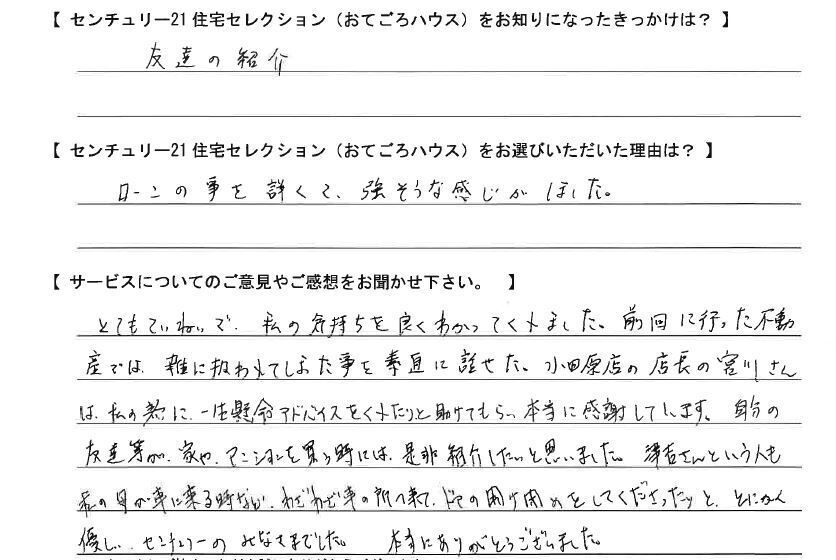 【 センチュリー21 住宅セレクション（おてごろハウス）をお知りになったきっかけは？ 】
友達の紹介
【 センチュリー21 住宅セレクション（おてごろハウス）をお選びいただいた理由は？ 】
ローンの事を詳くて、強そうな感じがしました。
【 サービスについてのご意見やご感想をお聞かせ下さい。 】
とてもていねいで、私の気持ちを良くわかってくれました。前回に行った不動
産では、雑に扱われてしまった事を素直に話せた。小田原店の店長の宮川さん
は、私の為に、一生懸命アドバイスをくれたりと助けてもらい本当に感謝しています。自分の
友達等が、家や、マンションを買う時には、是非紹介したいと思いました。 さんという人も
私の母が車に乗る時など、わざわざ車の所へ来て、ドアの開け閉めをしてくださったりと、とにかく
優しい、センチュリーのみなさまでした。 本当にありがとうございました。